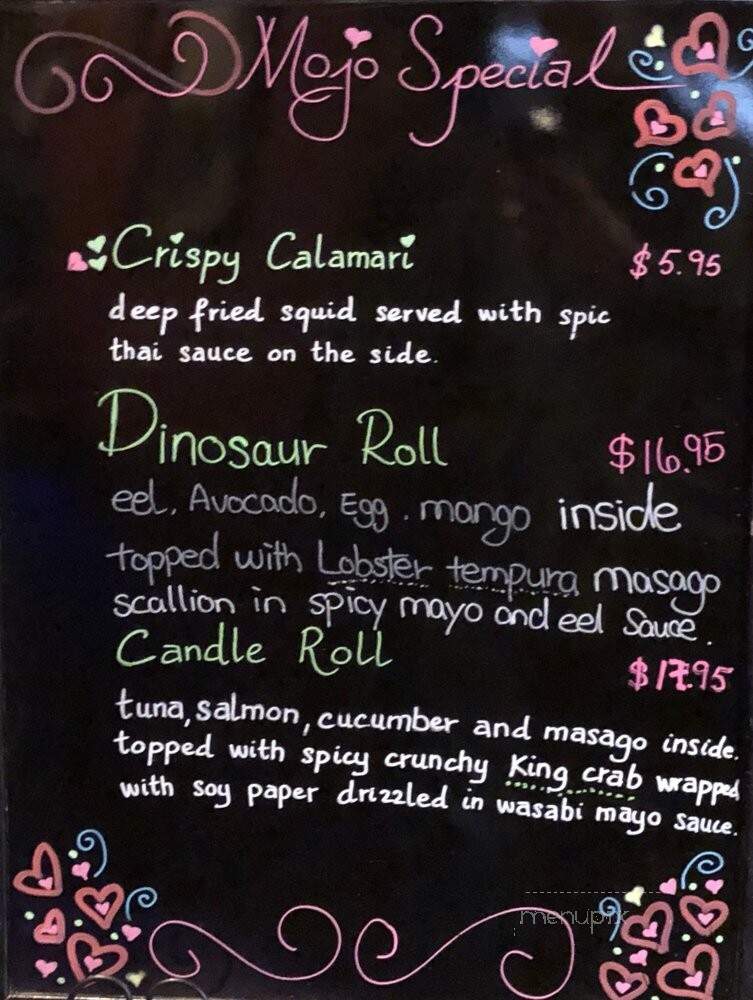 Mojo Special
Crispy Calamari $5.95
deep fried squid served with spic
thai sauce on the side.
Dinosaur Roll $16.95
eel, Avocado, Egg. mango inside
topped with Lobster tempura masago
scallion in spicy mayo and eel Sauce.
Candle Roll $17.95
tuna, salmon, cucumber and masago inside.
topped with spicy crunchy King crab wrapped
with soy paper drizzled in wasabi mayo sauce.
menupix